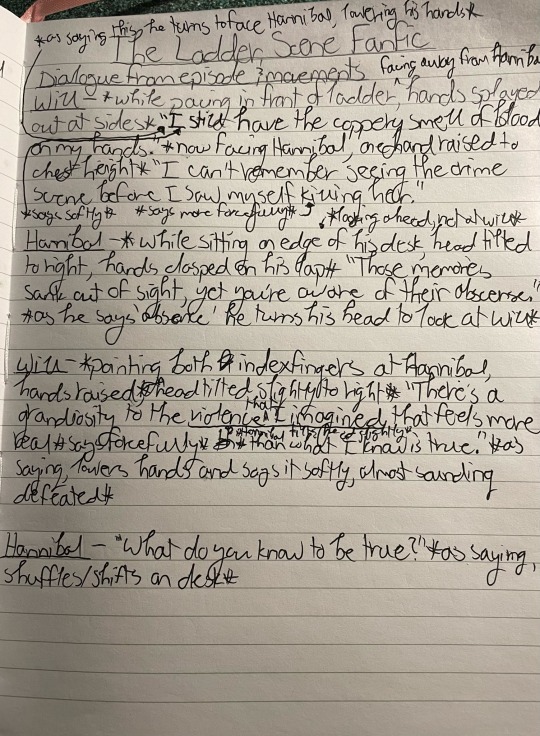 *as saying this, he turns to face Hannibal, lowering his hands*
The Ladder Scene Fanfic
Dialogue from episode & movements facing away from Hannibal
Will - *while pacing in front of ladder, hands splayed
out at sides* "I still have the coppery smell of blood
on my hands." *now facing Hannibal, one hand raised to
chest height* "I can't remember seeing the crime
scene before I saw myself killing her."
*says softly* *says more forcefully* *looking ahead, not at will*
Hannibal - *while sitting on edge of his desk, head tilted
to right, hands clasped on his lap* "Those memories
sank out of sight, yet you're aware of their absense."
*as he says 'absence' he turns his head to look at will*
Will - *pointing both indexfingers at Hannibal,
hands raised, head tilted slightly to right* "There's a
grandiosity to the violence that I imagined that feels more
real *says forcefully* than what I know is true." *as
saying, lowers hands and says it softly, almost sounding
defeated*
Hannibal - "What do you know to be true?" *as saying,
shuffles/shifts on desk*